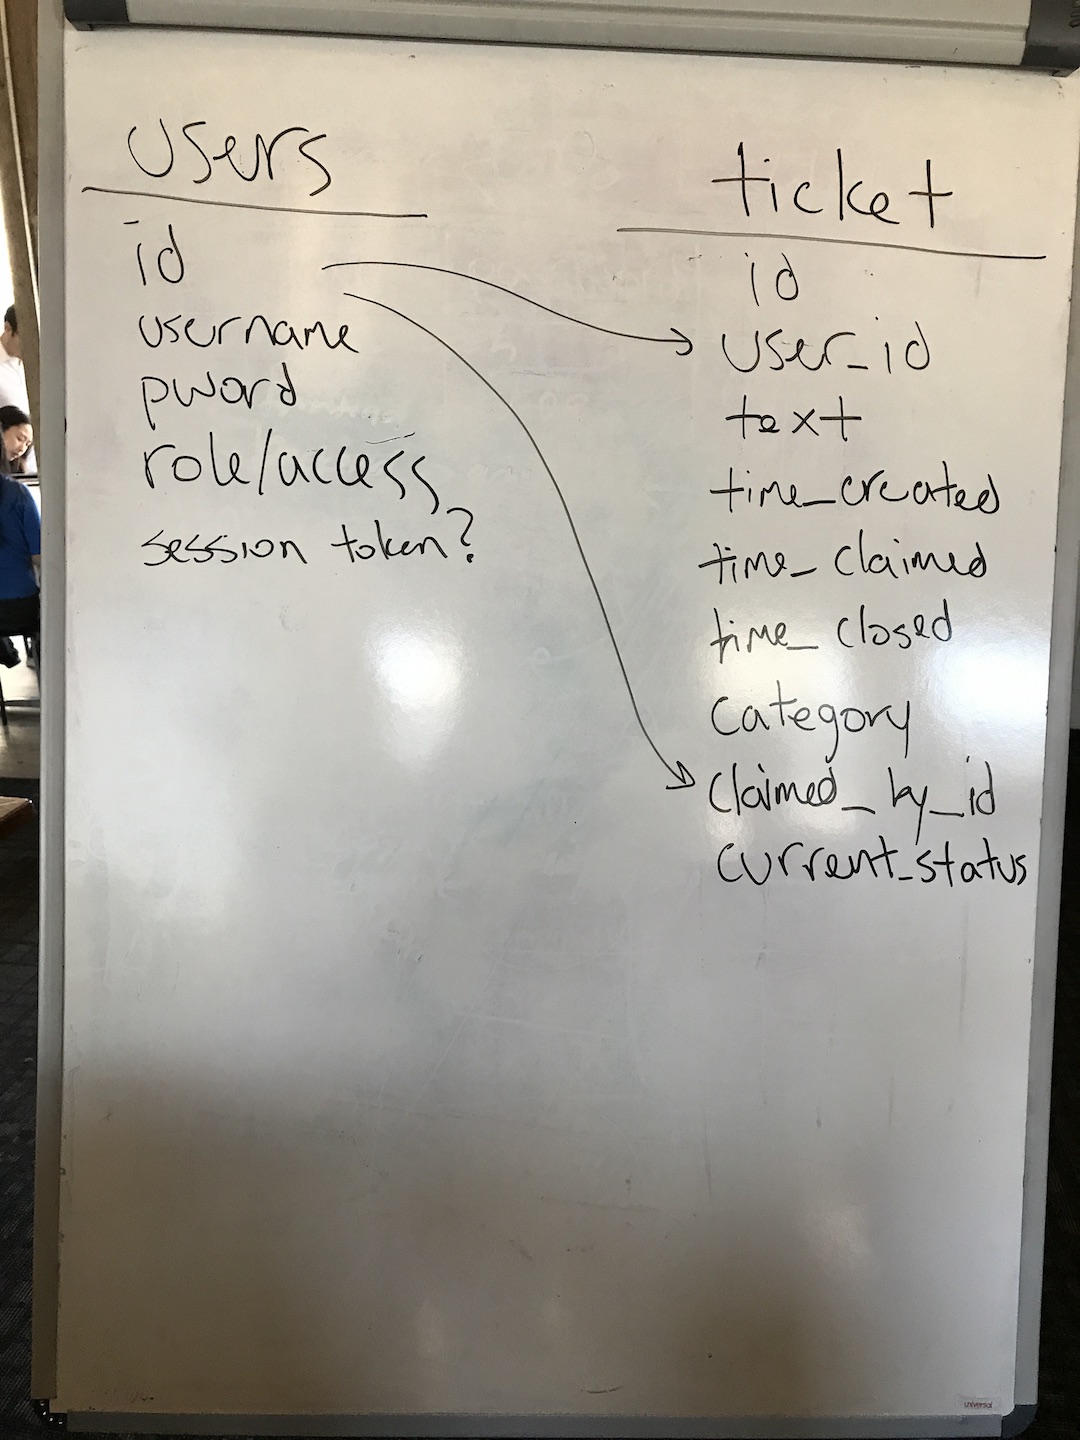 users
id
username
pword
role/access
session token?
ticket
id
user_id
text
time_created
time_claimed
time_closed
category
claimed_by_id
current_status
universal